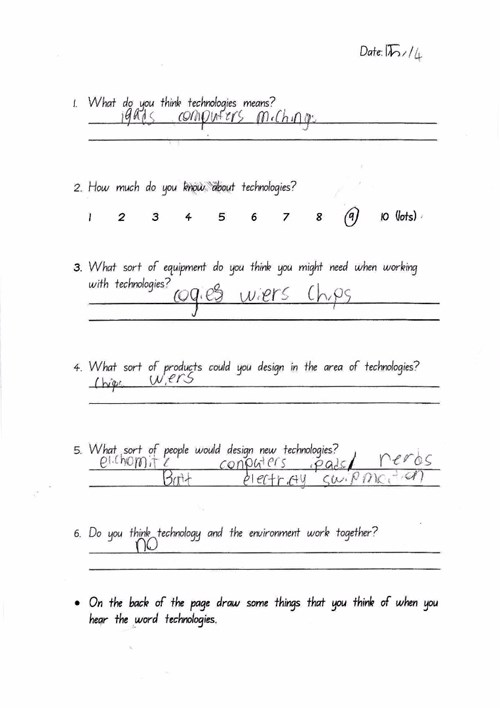 Date:
1. What do you think technologies means?
ipads computers michings
2. How much do you know about technologies?
1 2 3 4 5 6 7 8 9 10 (lots)
3. What sort of equipment do you think you might need when working
with technologies?
cogies wiers Chips
4. What sort of products could you design in the area of technologies?
Chips wiers
5. What sort of people would design new technologies?
computers ipads nerbs
6. Do you think technology and the environment work together?
no
• On the back of the page draw some things that you think of when you
hear the word technologies.